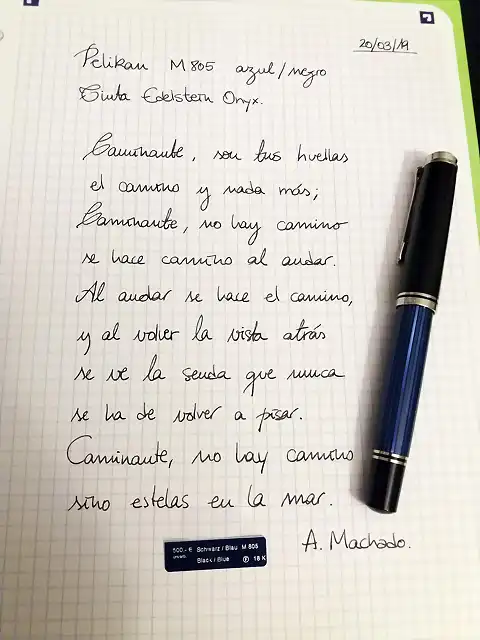 20/03/19
Pelikan M805 azul/negro
Tinta Edelstein Onyx.
Caminante, son tus huellas
el camino y nada más;
Caminante, no hay camino
se hace camino al andar.
Al andar se hace el camino,
y al volver la vista atrás
se ve la senda que nunca
se ha de volver a pisar.
Caminante, no hay camino
sino estelas en la mar.
A. Machado.
500,- € Schwarz / Blau M 805
Black / Blue F 18 K